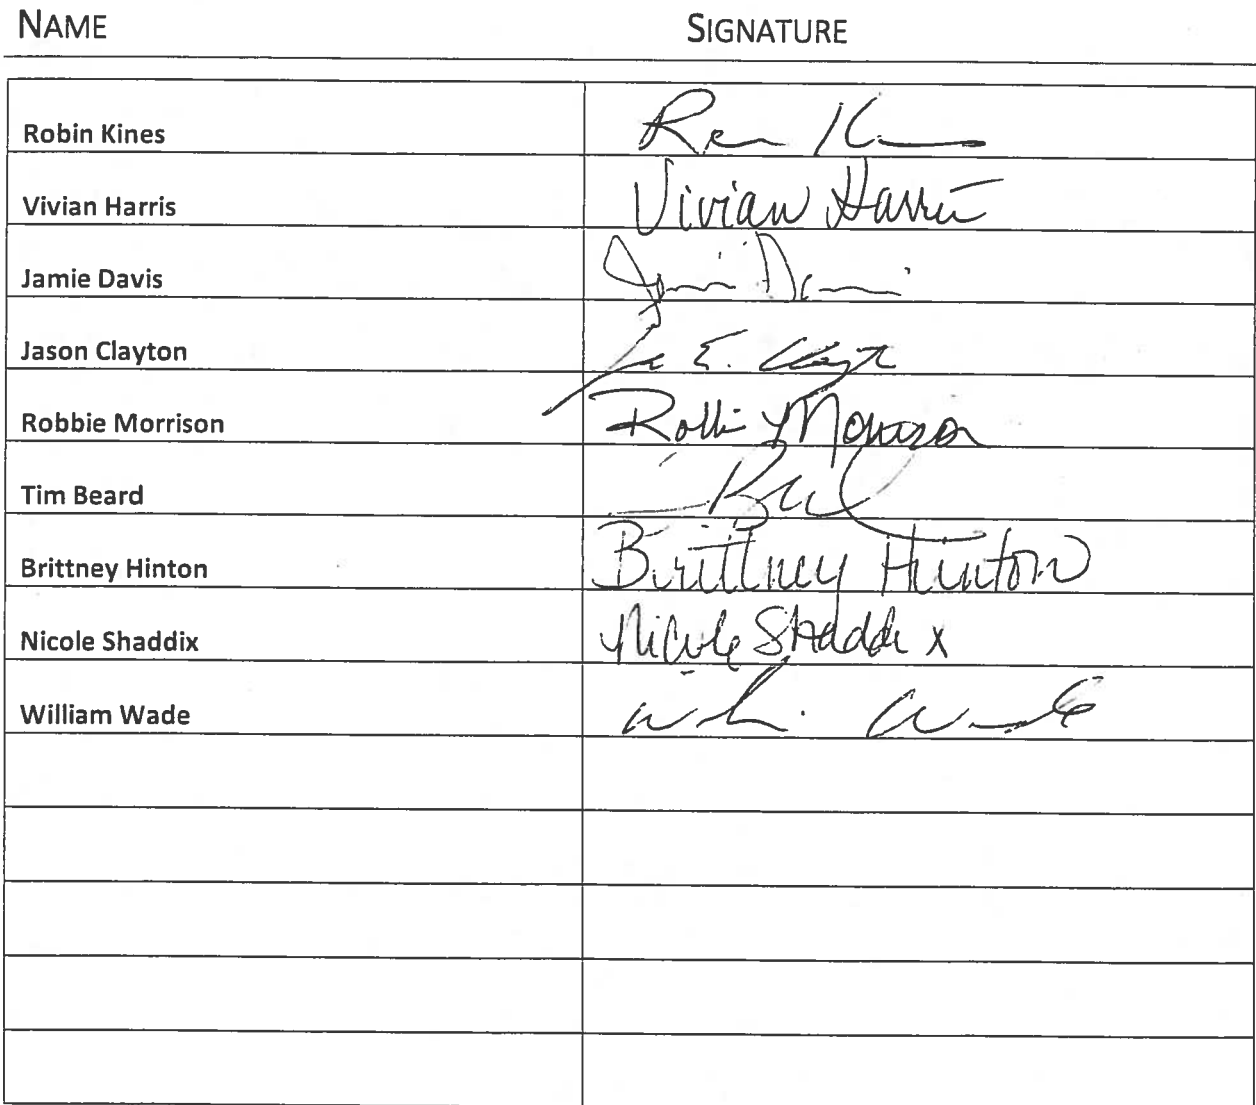 NAME SIGNATURE
Robin Kines
Vivian Harris Vivian Harris
Jamie Davis Jamie Davis
Jason Clayton E.
Robbie Morrison Robbie Morrison
Tim Beard
Brittney Hinton Brittney Hinton
Nicole Shaddix Nicole Shaddix
William Wade